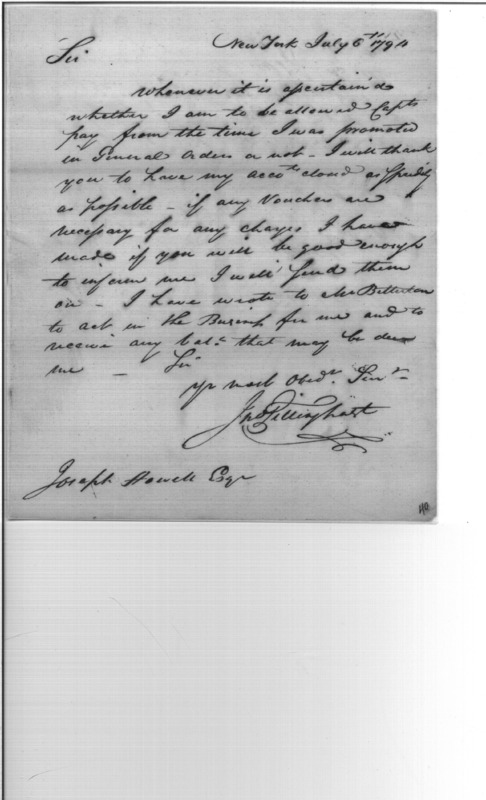 New York July 6th 1794
Sir
Whenever it is ascertain'd
whether I am to be allowed Capts
pay from the time I was promoted
in General Orders or not – I will thank
you to have my accots closed as speedily
as possible – if any Vouchers are
necessary for any charges I have
made if you will be good enough
to inform me I will send them
on – I have wrote to Mr
to act in the Business for me and to
receive any bale that may be due
me – Sir
yr most Obedt Servt
Jno Tillinghast
Joseph Howell Esqr
40